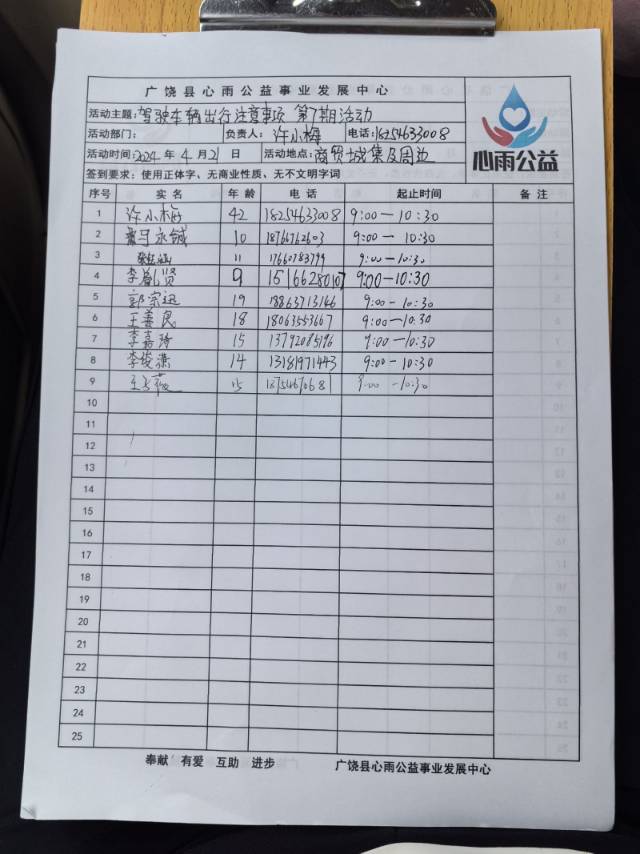 广饶县心雨公益事业发展中心
活动主题: 驾驶车辆出行注意事项 第7期活动
活动部门: 负责人: 许小梅 电话: 18254633008
活动时间: 2024 年 4 月 21 日 活动地点: 商贸城集及周边
签到要求: 使用正体字、无商业性质、无不文明字词
心雨公益
序号 实名 年龄 电话 起止时间 备注
1 许小梅 42 18254633008 9:00—10:30
2 永铖 10 18766762603 9:00—10:30
3 11 17660783799 9:00—10:30
4 李 贤 9 15166280107 9:00—10:30
5 郭宗迅 19 18863713146 9:00—10:30
6 王善民 18 18063553667 9:00—10:30
7 李嘉琦 15 13792085196 9:00—10:30
8 李俊潇 14 13181971443 9:00—10:30
9 15 9:00—10:30
10
11
12
13
14
15
16
17
18
19
20
21
22
23
24
25
奉献 有爱 互助 进步 广饶县心雨公益事业发展中心